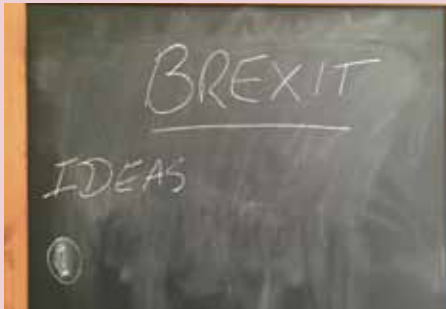 BREXIT
IDEAS
①